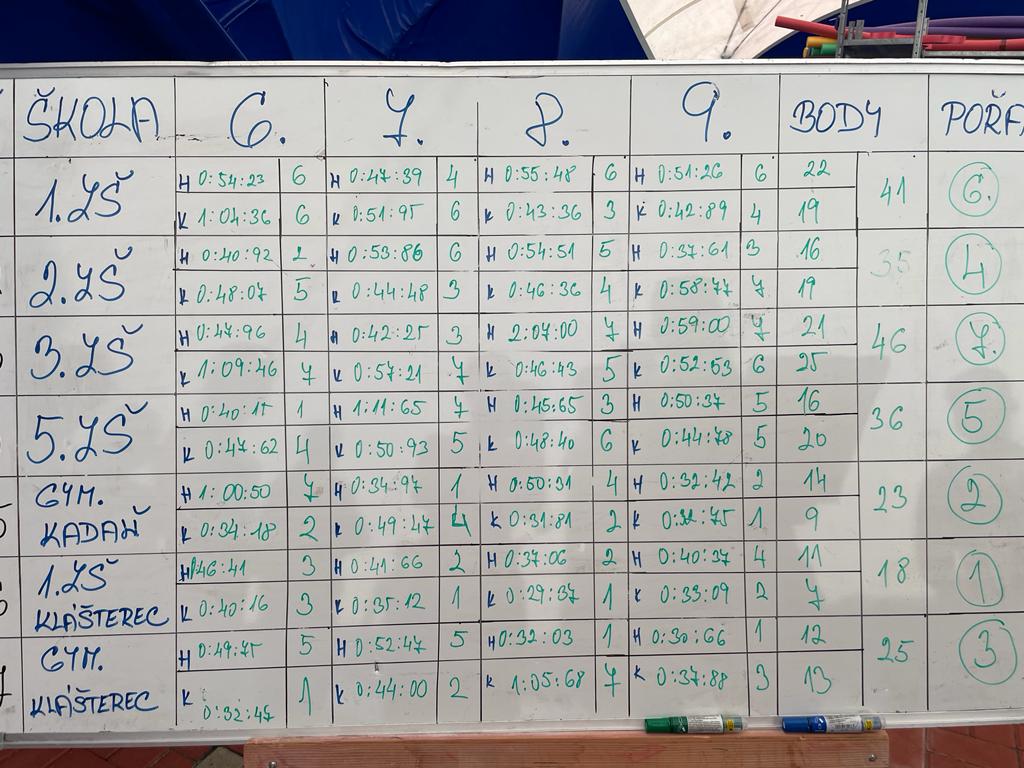 ŠKOLA 6. 7. 8. 9. BODY POŘA
1.ZŠ H 0:54:23 6 H 0:47:39 4 H 0:55:48 6 H 0:51:26 6 22 41 6.
K 1:04:36 6 K 0:51:95 6 K 0:43:36 3 K 0:42:89 4 19
2.ZŠ H 0:40:92 2 H 0:53:86 6 H 0:54:51 5 H 0:37:61 3 16 35 4
K 0:48:07 5 K 0:44:48 3 K 0:46:36 4 K 0:58:77 7 19
3.ZŠ H 0:47:96 4 H 0:42:25 3 H 2:07:00 7 H 0:59:00 7 21 46 7.
K 1:09:46 7 K 0:57:21 7 K 0:46:43 5 K 0:52:53 6 25
5.ZŠ H 0:40:15 1 H 1:11:65 7 H 0:45:65 3 H 0:50:37 5 16 36 5
K 0:47:62 4 K 0:50:93 5 K 0:48:40 6 K 0:44:78 5 20
GYM. H 1:00:50 7 H 0:34:97 1 H 0:50:31 4 H 0:32:42 2 14 23 2
KADAŇ K 0:34:18 2 K 0:49:47 4 K 0:31:81 2 K 1 9
1.ZŠ H 0:46:41 3 H 0:41:66 2 H 0:37:06 2 H 0:40:37 4 11 18 1
KLÁŠTEREC K 0:40:16 3 K 0:35:12 1 K 0:29:37 1 K 0:33:09 2 7
GYM. H 0:49:75 5 H 0:52:47 5 H 0:32:03 1 H 0:30:66 1 12 25 3
KLÁŠTEREC K 0:32:45 1 K 0:44:00 2 K 1:05:68 7 K 0:37:88 3 13